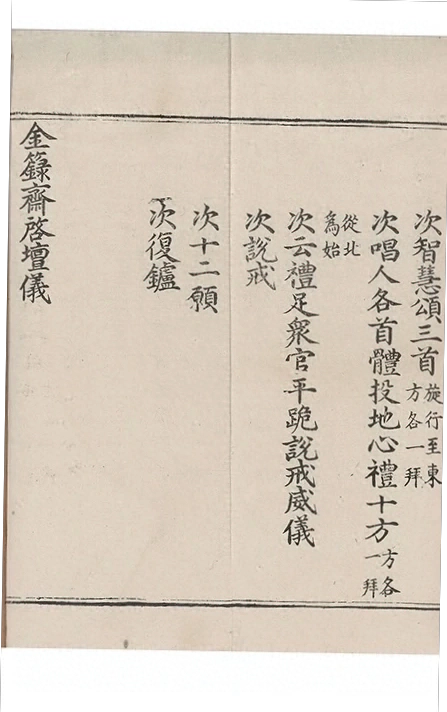 次智慧頌三首旋行至東方各一拜
次唱人各首體投地心禮十方方各一拜
從北為始
次云禮足衆官平跪說戒威儀
次說戒
次十二願
次復鑪
金籙齋啓壇儀